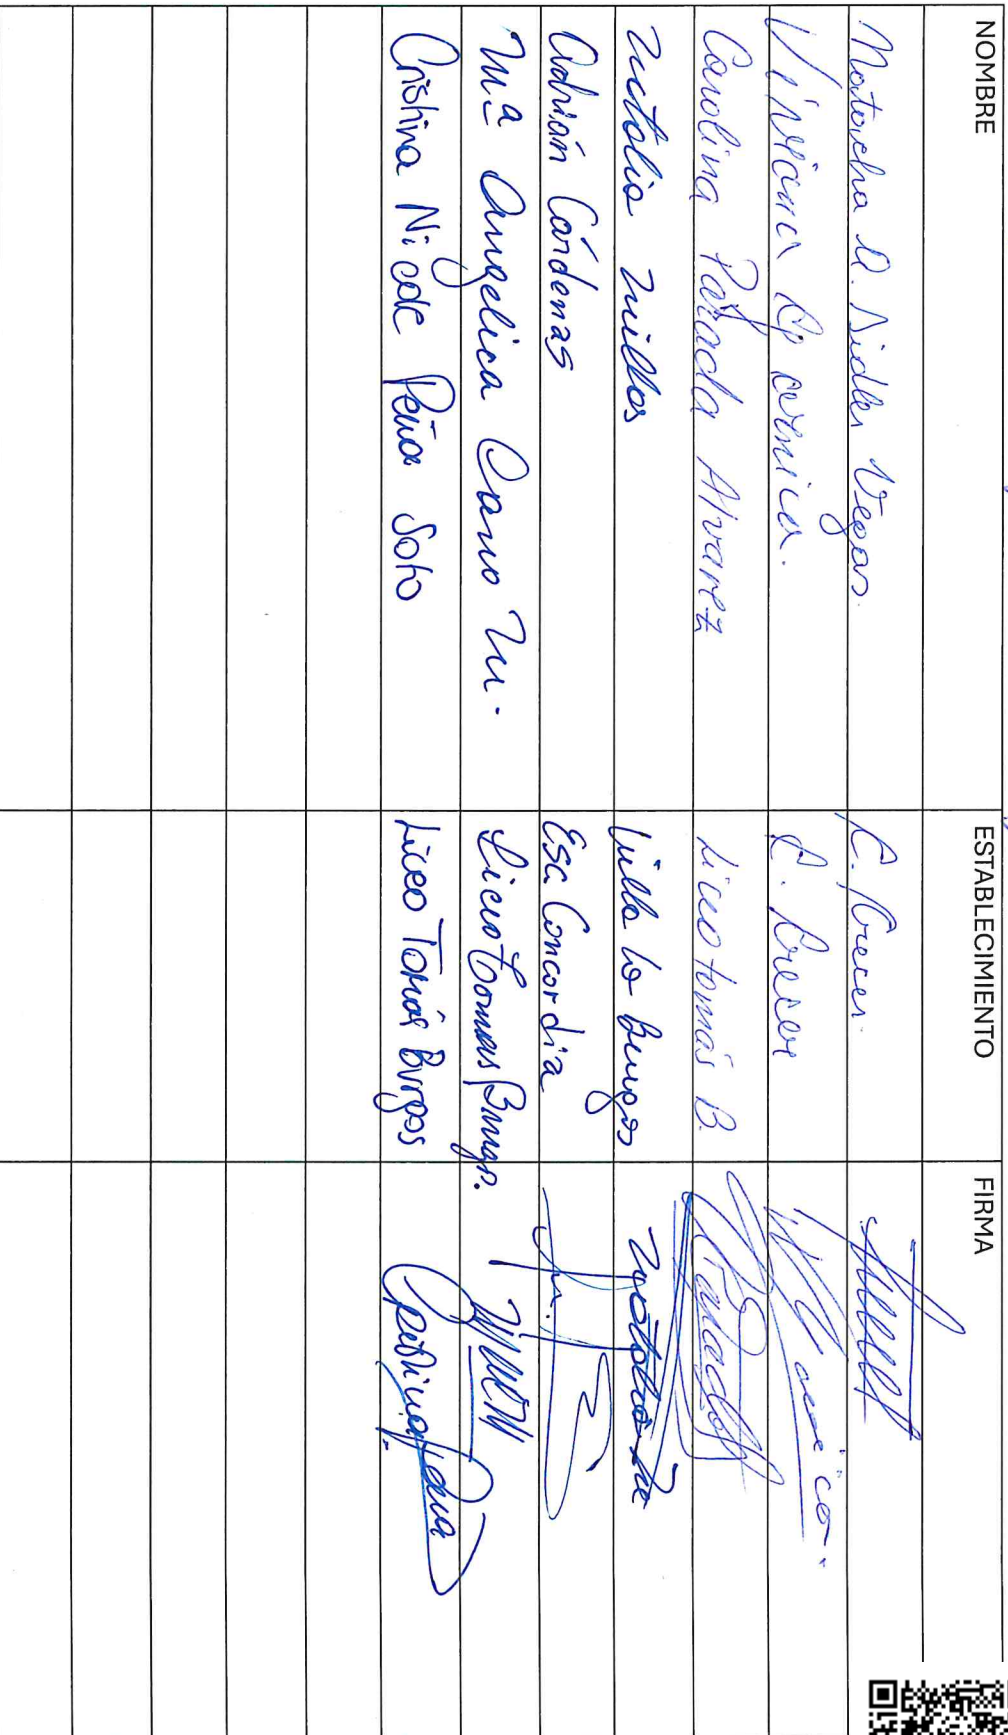 NOMBRE ESTABLECIMIENTO FIRMA
A. Vegas. C. Crecer.
C. Crecer
Carolina Parada Alvarez Liceo Tomás B.
Natalia Millas Villa Lo Burgos Natalia
Adrián Cárdenas Esc Concordia
Mª Angelica Cano M. Liceo Tomas Burgos.
Cristina Nicole Peña Soto Liceo Tomás Burgos Cristina Peña